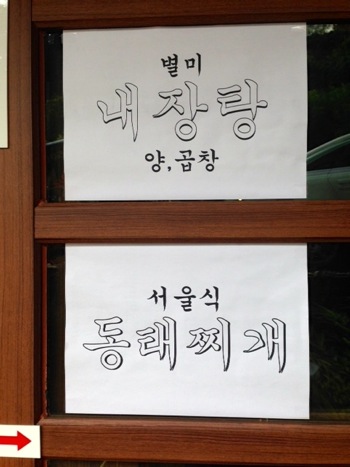 별미
내장탕
양,곱창
서울식
동태찌개